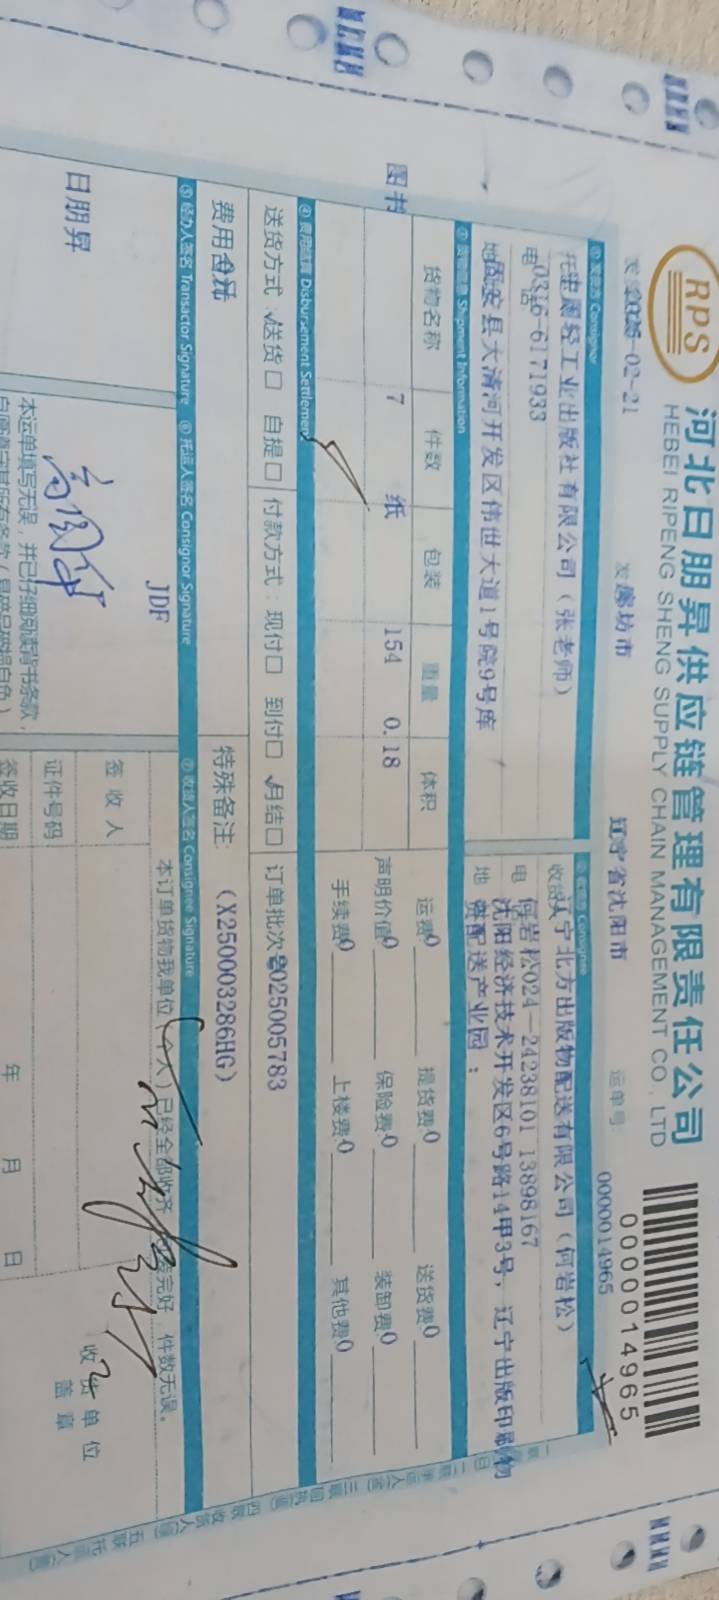 RPS
河北日朋昇供应链管理有限责任公司
HEBEI RIPENG SHENG SUPPLY CHAIN MANAGEMENT CO., LTD
0000014965
-02-21
廊坊市
辽宁省沈阳市
运单号:
0000014965
① 发货方 Consignor
② 收货方 Consignee
轻工业出版社有限公司（张老师）
辽宁北方出版物配送有限公司（何岩松）
0316-6171933
何岩松024-24238101 13898167
固安县大清河开发区伟世大道1号院9号库
沈阳经济技术开发区6号路14甲3号，辽宁出版印刷物
资配送产业园：
③ 货物信息 Shipment Information
货物名称 件数 包装 重量 体积
图书 7 纸 154 0.18
运费0 提货费0 送货费0
声明价值0 保险费0 装卸费0
手续费0 上楼费0 其他费0
④ 费用结算 Disbursement Settlement
送货方式:送货□ 自提□ 付款方式:现付□ 到付□ 月结□ 订单批次号2025005783
费用合计
特殊备注: (X250003286HG)
⑤ 经办人签名 Transactor Signature ⑥ 托运人签名 Consignor Signature ⑦ 收货人签名 Consignee Signature
日朋昇
JDF
本运单填写无误，并已仔细阅读背书条款，
本订单货物我单位(个人)已经全部收齐
完好，件数无误。
签收人
证件号码
签收日期
年 月 日
收货单位
盖章